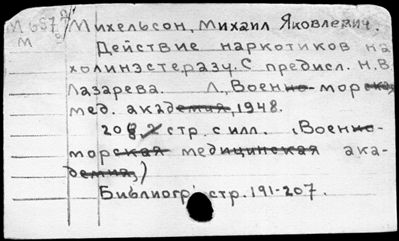 М657 Михельсон, Михаил Яковлевич.
М Действие наркотиков на
холинэстеразу. С предисл. Н.В.
Лазарева. Л., Военно-морская
мед. академия, 1948.
208 стр. с илл. (Военно-
морская медицинская ака-
демия.)
Библиогр. стр. 191-207.